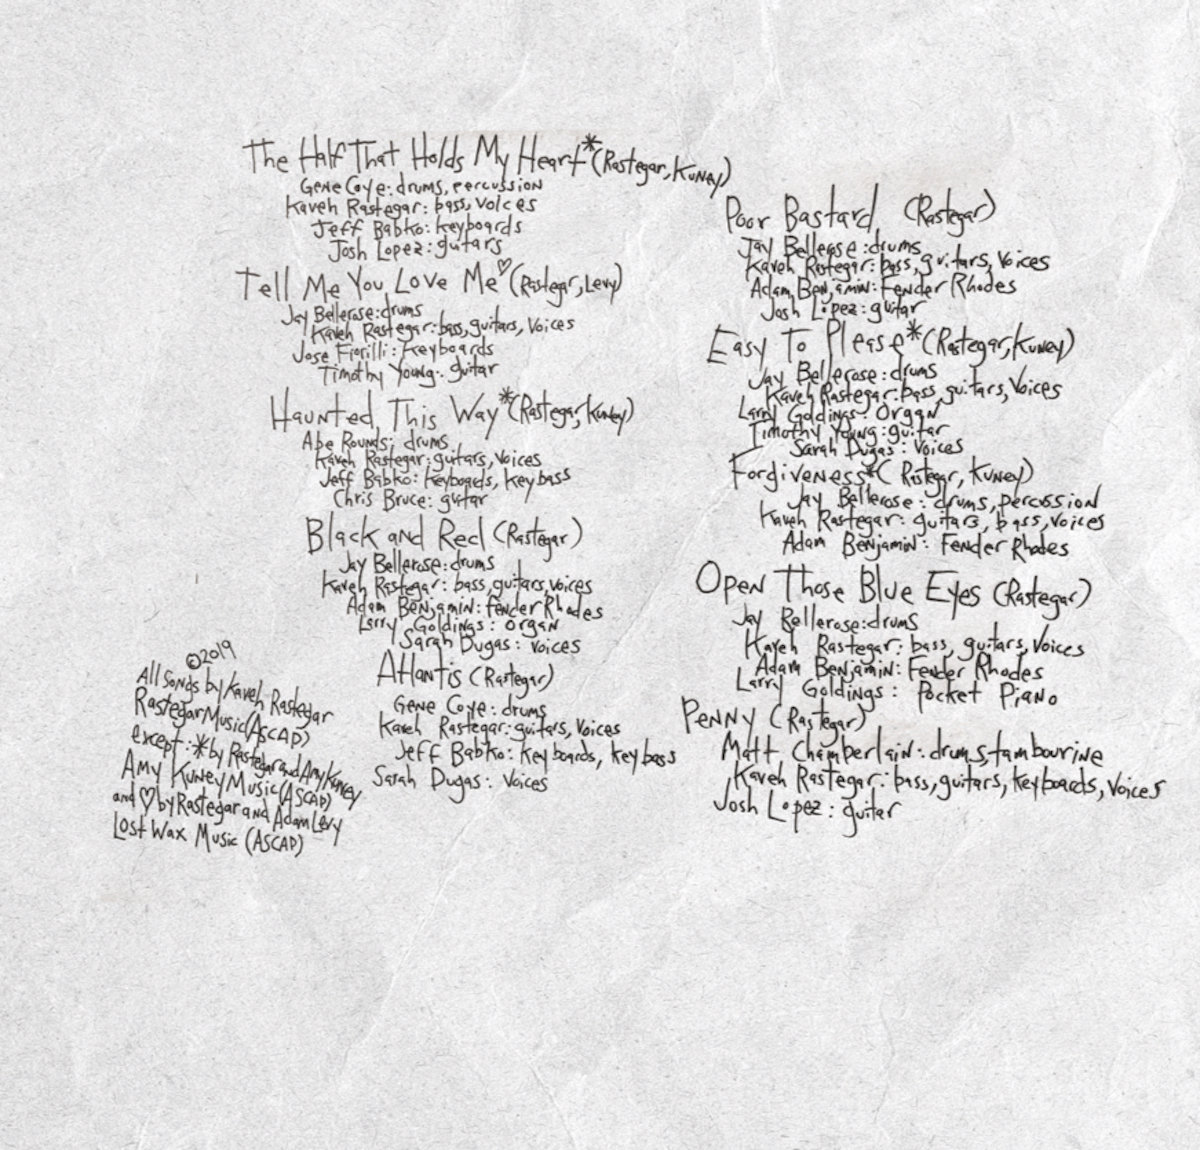 The Half That Holds My Heart* (Rastegar, Kuney)
Gene Coye: drums, percussion
Kaveh Rastegar: bass, voices
Jeff Babko: keyboards
Josh Lopez: guitars
Tell Me You Love Me♡ (Rastegar, Levy)
Jay Bellerose: drums
Kaveh Rastegar: bass, guitars, voices
Jose Fiorilli: keyboards
Timothy Young: guitar
Haunted This Way* (Rastegar, Kuney)
Abe Rounds: drums
Kaveh Rastegar: guitars, voices
Jeff Babko: keyboards, key bass
Chris Bruce: guitar
Black and Red (Rastegar)
Jay Bellerose: drums
Kaveh Rastegar: bass, guitars, voices
Adam Benjamin: Fender Rhodes
Larry Goldings: organ
Sarah Dugas: voices
Atlantis (Rastegar)
Gene Coye: drums
Kaveh Rastegar: guitars, voices
Jeff Babko: keyboards, key bass
Sarah Dugas: voices
©2019
All songs by Kaveh Rastegar
Rastegar Music (ASCAP)
except: * by Rastegar and Amy Kuney
Amy Kuney Music (ASCAP)
and ♡ by Rastegar and Adam Levy
Lost Wax Music (ASCAP)
Poor Bastard (Rastegar)
Jay Bellerose: drums
Kaveh Rastegar: bass, guitars, voices
Adam Benjamin: Fender Rhodes
Josh Lopez: guitar
Easy To Please* (Rastegar, Kuney)
Jay Bellerose: drums
Kaveh Rastegar: bass, guitars, voices
Larry Goldings: organ
Timothy Young: guitar
Sarah Dugas: voices
Forgiveness* (Rastegar, Kuney)
Jay Bellerose: drums, percussion
Kaveh Rastegar: guitars, bass, voices
Adam Benjamin: Fender Rhodes
Open Those Blue Eyes (Rastegar)
Jay Bellerose: drums
Kaveh Rastegar: bass, guitars, voices
Adam Benjamin: Fender Rhodes
Larry Goldings: Pocket Piano
Penny (Rastegar)
Matt Chamberlain: drums, tambourine
Kaveh Rastegar: bass, guitars, keyboards, voices
Josh Lopez: guitar